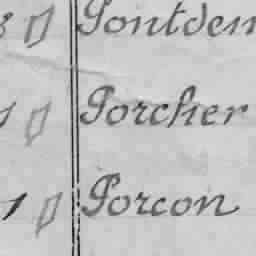 Pontden
1 Porcher
1 Porcon